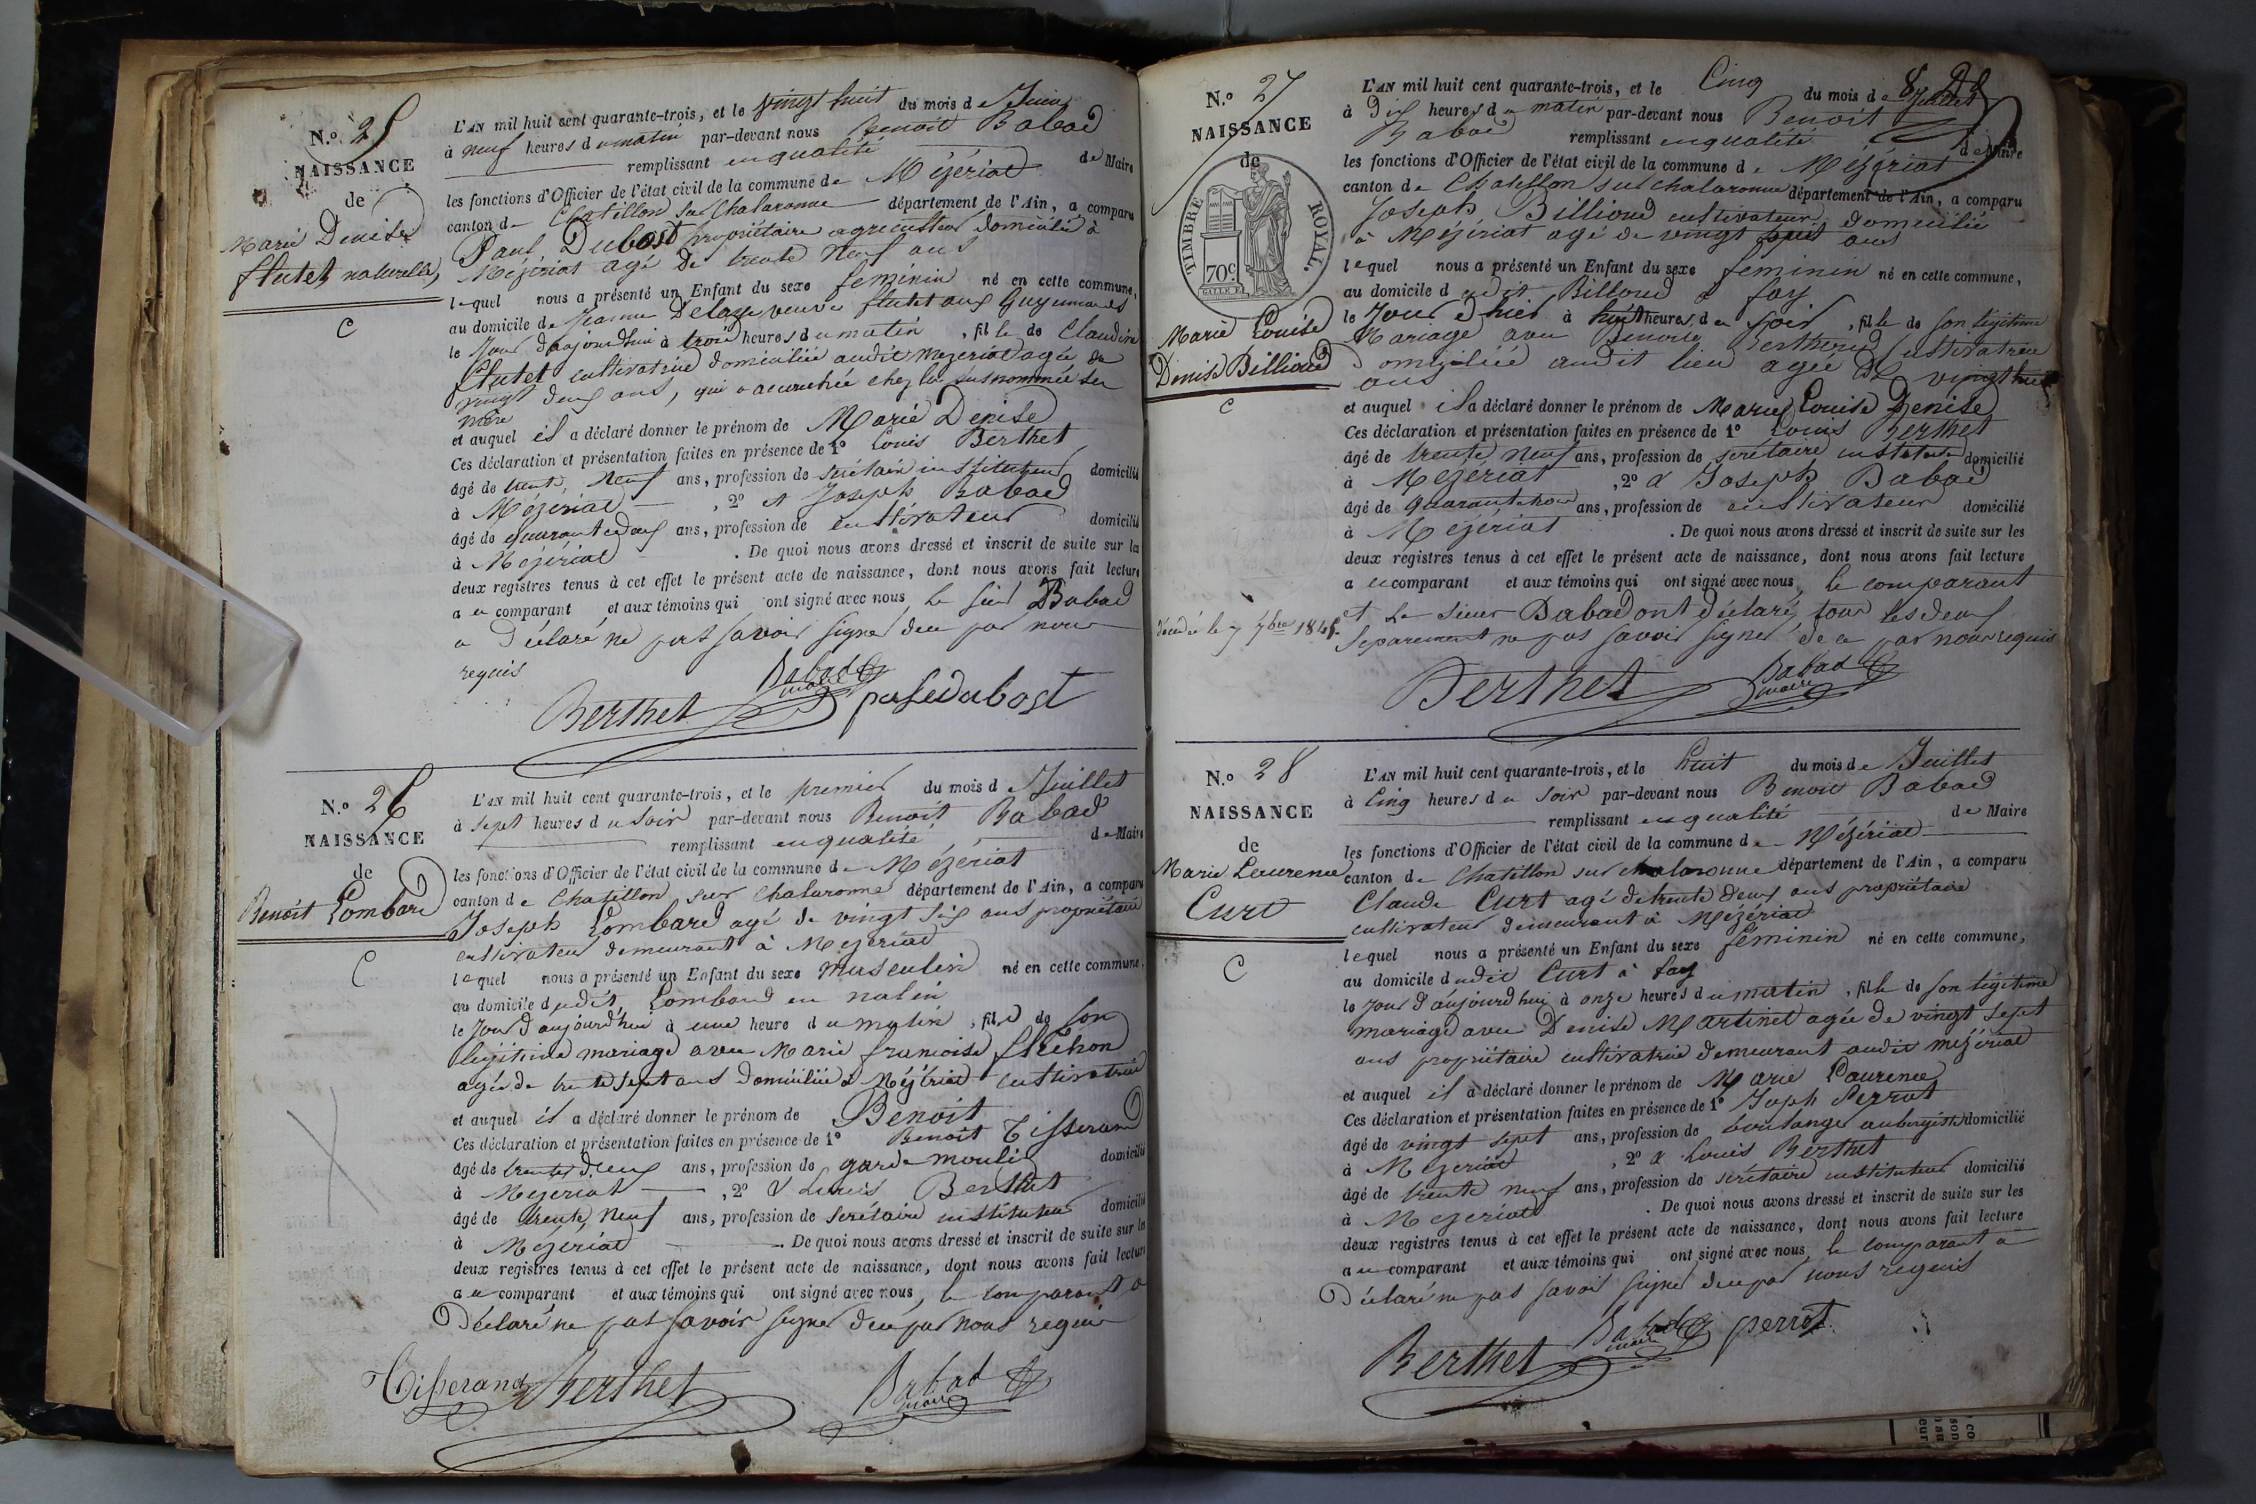 N.º 25
NAISSANCE
de
Marie Denise
flutet naturelle
C
L'AN mil huit cent quarante-trois, et le vingt huit du mois de Juin
à neuf heures du matin par-devant nous Benoit Babad
remplissant en qualité de Maire
les fonctions d'Officier de l'état civil de la commune de Mézériat
canton de Chatillon sur Chalaronne département de l'Ain, a comparu
Paul Dubost propriétaire agriculteur domicilié à
Mézériat agé de trente neuf ans
lequel nous a présenté un Enfant du sexe féminin né en cette commune,
au domicile de Jeanne Delaye veuve flutet aux Guyumards
le Jour d'aujourd'hui à trois heures du matin, fille de Claudine
flutet cultivatrice domiciliée audit Mézériat agée de
vingt deux ans, qui a accouchée chez la susnommée sa
mère
et auquel il a déclaré donner le prénom de Marie Denise
Ces déclaration et présentation faites en présence de 1º Louis Berthet
âgé de trente neuf ans, profession de secrétaire instituteur domicilié
à Mézériat, 2º et Joseph Babad
âgé de quarante deux ans, profession de cultivateur domicilié
à Mézériat. De quoi nous avons dressé et inscrit de suite sur les
deux registres tenus à cet effet le présent acte de naissance, dont nous avons fait lecture
au comparant et aux témoins qui ont signé avec nous, le sieur Babad
a Déclaré ne pas savoir signer dece par nous
requis
Babad
maire
Berthet dubost
N.º 26
NAISSANCE
de
Benoit Lombard
C
L'AN mil huit cent quarante-trois, et le premier du mois de Juillet
à sept heures du soir par-devant nous Benoit Babad
remplissant en qualité de Maire
les fonctions d'Officier de l'état civil de la commune de Mézériat
canton de Chatillon sur Chalaronne département de l'Ain, a comparu
Joseph Lombard agé de vingt six ans propriétaire
cultivateur demeurant à Mezeriat
lequel nous a présenté un Enfant du sexe masculin né en cette commune,
au domicile dudit Lombard en
le Jour d'aujourd'hui à une heure du matin, fils de son
légitime mariage avec Marie françoise fléchon
agée de trente sept ans domiciliée à Mézériat cultivatrice
et auquel il a déclaré donner le prénom de Benoit
Ces déclaration et présentation faites en présence de 1º Benoit Tisserand
âgé de trente deux ans, profession de garde moulin domicilié
à Mezeriat, 2º & Louis Berthet
âgé de trente neuf ans, profession de secrétaire instituteur domicilié
à Mézériat. De quoi nous avons dressé et inscrit de suite sur les
deux registres tenus à cet effet le présent acte de naissance, dont nous avons fait lecture
au comparant et aux témoins qui ont signé avec nous, le comparant a
Déclaré ne pas savoir signer dece par nous requis
Tisserand Berthet Babad
maire
N.º 27
NAISSANCE
de
TIMBRE ROYAL.
70c
Marie Louise
Denise Billioud
C
décédée le 7 7bre 1845.
L'AN mil huit cent quarante-trois, et le Cinq du mois de Juillet
à Dix heures du matin par-devant nous Benoit
Babad remplissant en qualité de Maire
les fonctions d'Officier de l'état civil de la commune de Mézériat
canton de Chatillon sur chalaronne département de l'Ain, a comparu
Joseph Billioud cultivateur domicilié
à Mézériat agé de vingt sept ans
lequel nous a présenté un Enfant du sexe féminin né en cette commune,
au domicile dudit Billoud à fay
le Jour d'hier à huit heures du soir, fille de son légitime
Mariage avec Benoite Cultivatrice
Domiciliée audit lieu agée de vingt huit
ans
et auquel il a déclaré donner le prénom de Marie Louise Denise
Ces déclaration et présentation faites en présence de 1º Louis Berthet
âgé de trente neuf ans, profession de secrétaire instituteur domicilié
à Mezériat, 2º & Joseph Babad
âgé de quarante trois ans, profession de cultivateur domicilié
à Mezériat. De quoi nous avons dressé et inscrit de suite sur les
deux registres tenus à cet effet le présent acte de naissance, dont nous avons fait lecture
au comparant et aux témoins qui ont signé avec nous, le comparant
et le sieur Babad ont déclaré tous les deux
séparement ne pas savoir signer de ce par nous requis
Berthet Babad
maire
N.º 28
NAISSANCE
de
Marie Laurence
Curt
C
L'AN mil huit cent quarante-trois, et le huit du mois de Juillet
à Cinq heures du soir par-devant nous Benoit Babad
remplissant en qualité de Maire
les fonctions d'Officier de l'état civil de la commune de Mézériat
canton de Chatillon sur chalaronne département de l'Ain, a comparu
Claude Curt agé de trente deux ans propriétaire
cultivateur demeurant à Mézériat
lequel nous a présenté un Enfant du sexe féminin né en cette commune,
au domicile dudit Curt à fay
le Jour d'aujourd'hui à onze heures du matin, fille de son légitime
mariage avec Denise Martinet agée de vingt sept
ans propriétaire cultivatrice demeurant audit mézériat
et auquel il a déclaré donner le prénom de Marie Laurence
Ces déclaration et présentation faites en présence de 1º Joseph Perrot
âgé de vingt sept ans, profession de boulanger aubergiste domicilié
à Mezeriat, 2º & Louis Berthet
âgé de trente neuf ans, profession de secrétaire instituteur domicilié
à Mezeriat. De quoi nous avons dressé et inscrit de suite sur les
deux registres tenus à cet effet le présent acte de naissance, dont nous avons fait lecture
au comparant et aux témoins qui ont signé avec nous, le comparant a
Déclaré ne pas savoir signer dece par nous requis
Berthet Babad perrot
maire